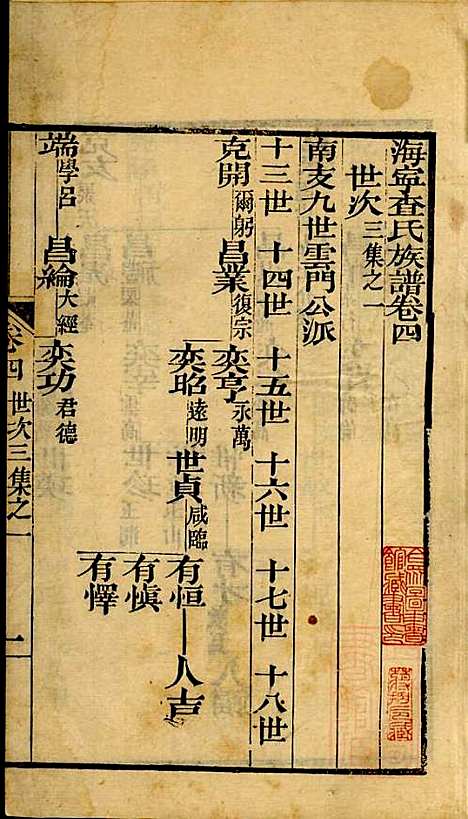 海寧查氏族譜卷四
世次三集之一
南支九世雲門公派
十三世 十四世 十五世 十六世 十七世 十八世
克開爾躬 昌業復宗 奕亨永萬
奕昭遠明 世貞咸臨 有恒 人吉
有愼
有懌
端學呂 昌綸大經 奕功君德
卷四 世次三集之一 一